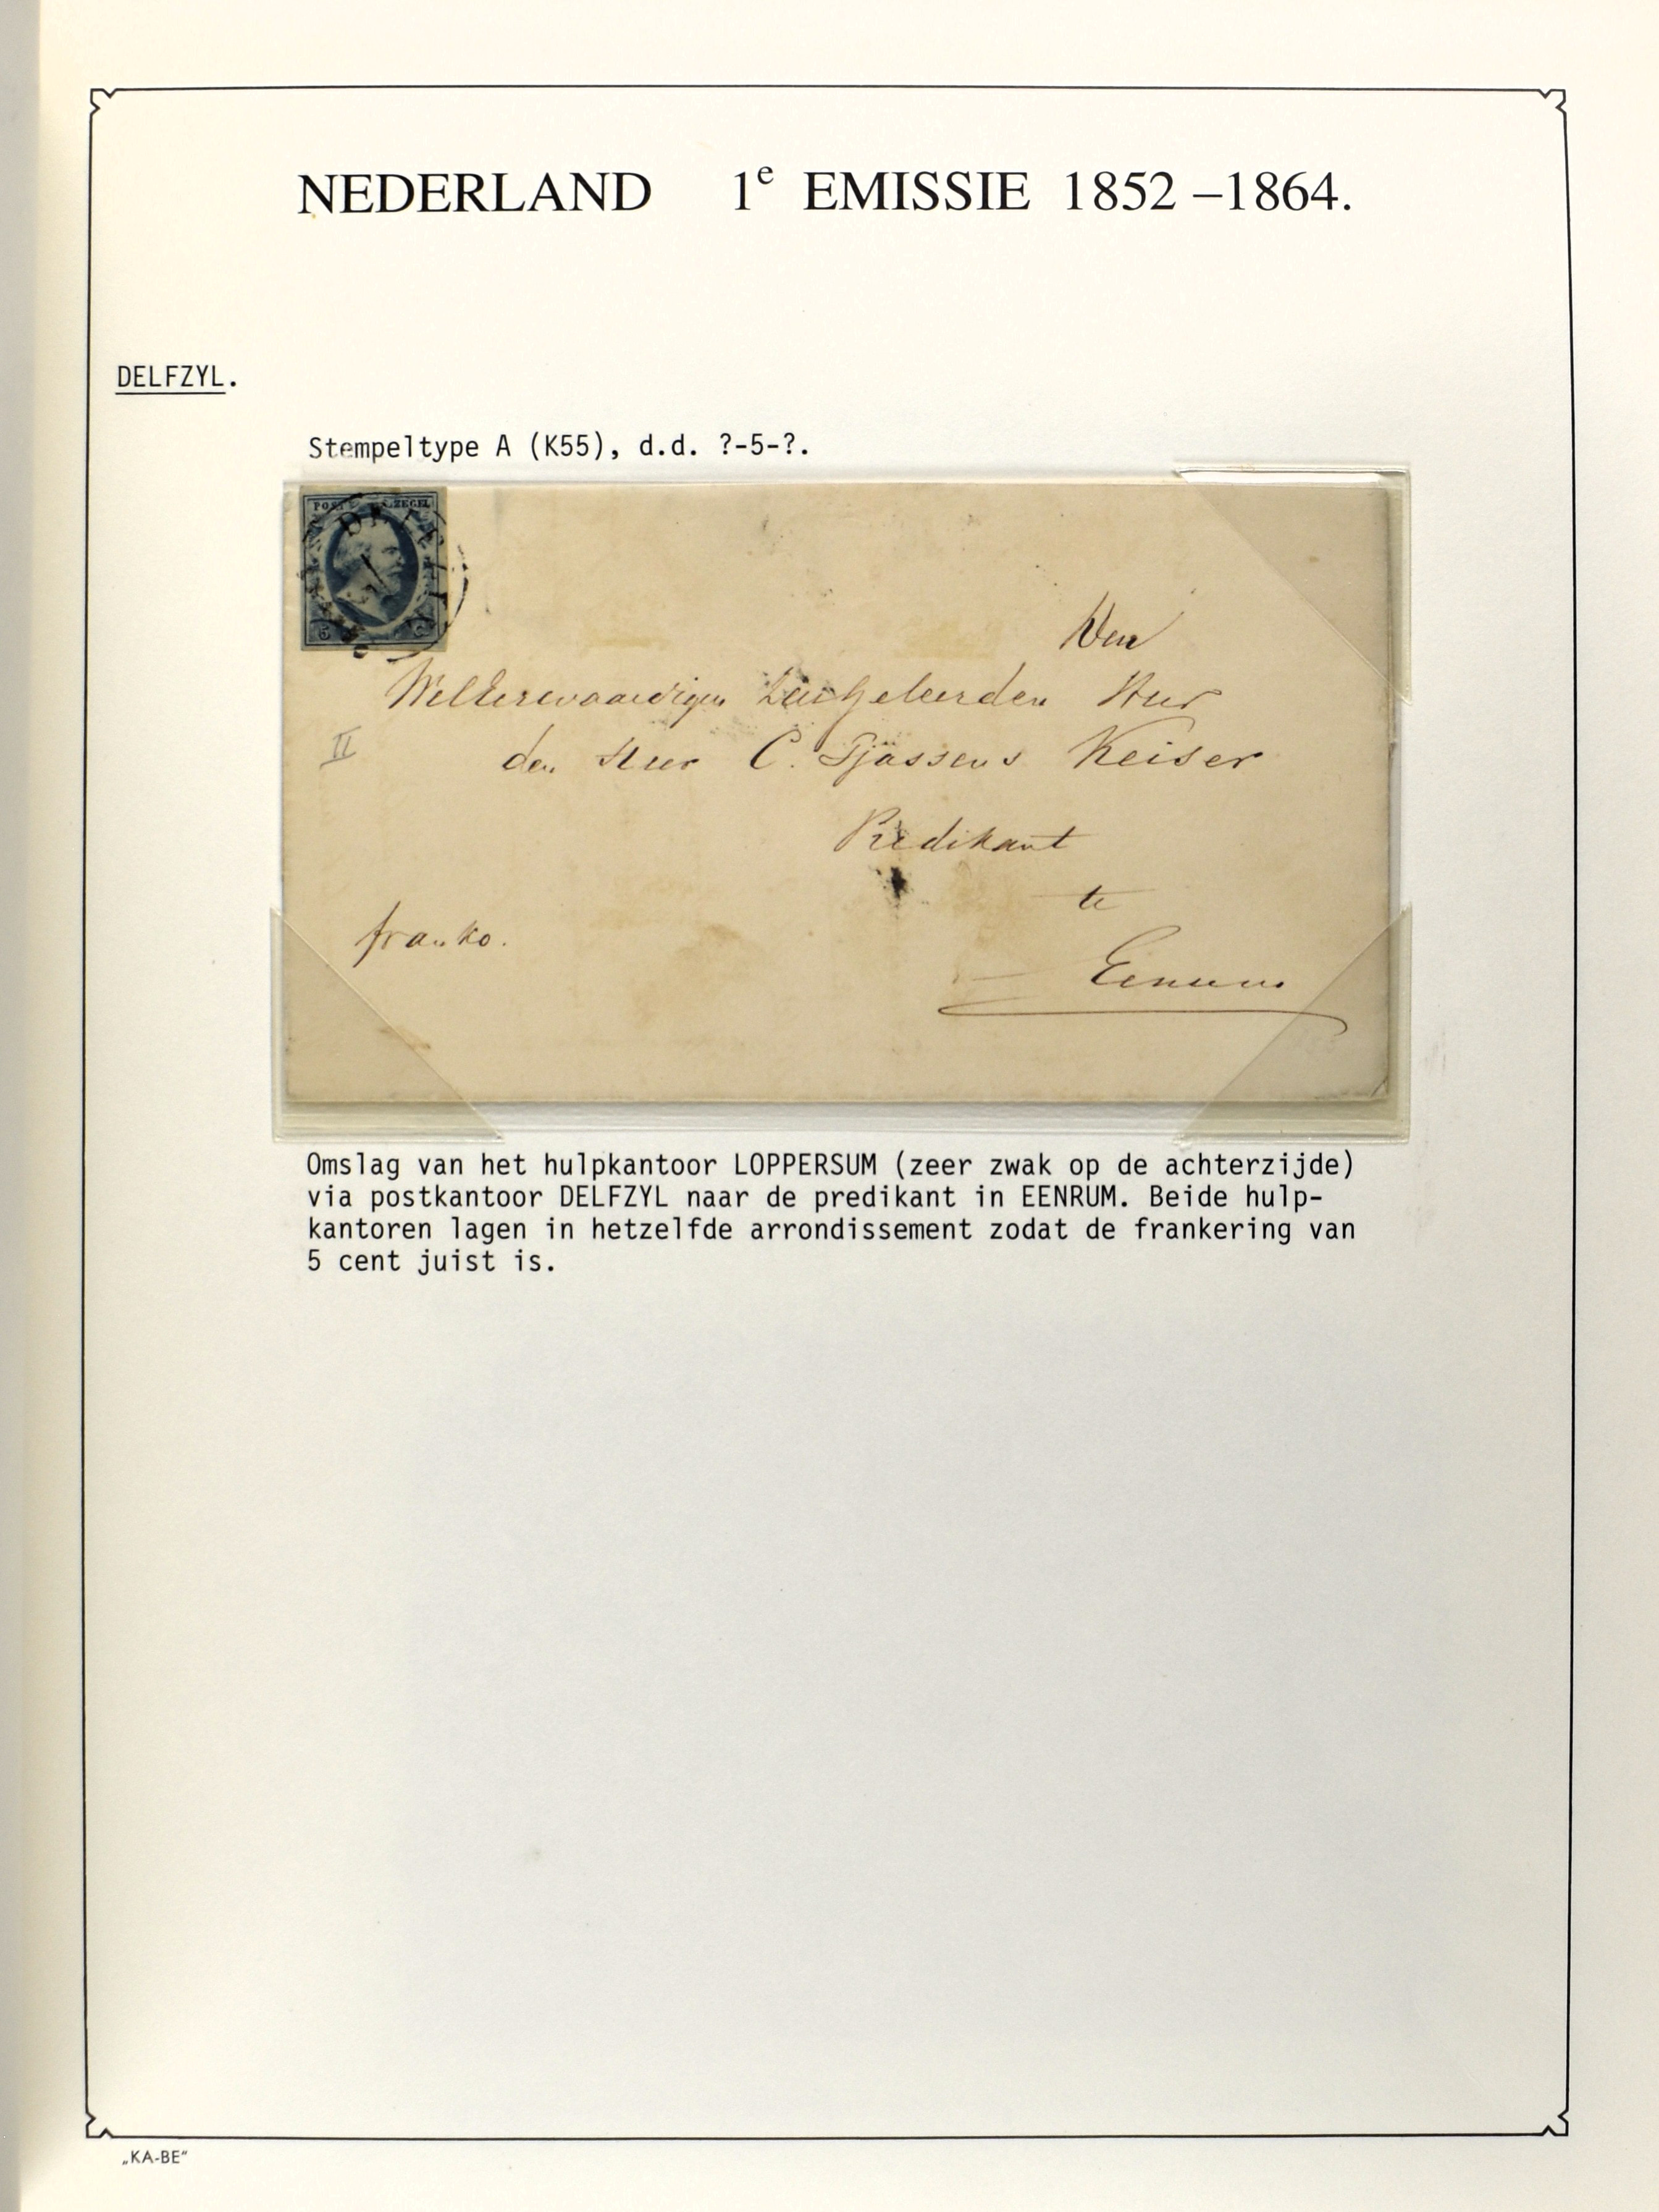 NEDERLAND 1e EMISSIE 1852 –1864.
DELFZYL.
Stempeltype A (K55), d.d. ?-5-?.
POST ZEGEL
5 C
Den
WelEerwaardigen Zeergeleerden Heer
II
den Heer C. Tjassens Keiser
Predikant
te
franko.
Eenrum
Omslag van het hulpkantoor LOPPERSUM (zeer zwak op de achterzijde)
via postkantoor DELFZYL naar de predikant in EENRUM. Beide hulp-
kantoren lagen in hetzelfde arrondissement zodat de frankering van
5 cent juist is.
„KA-BE”